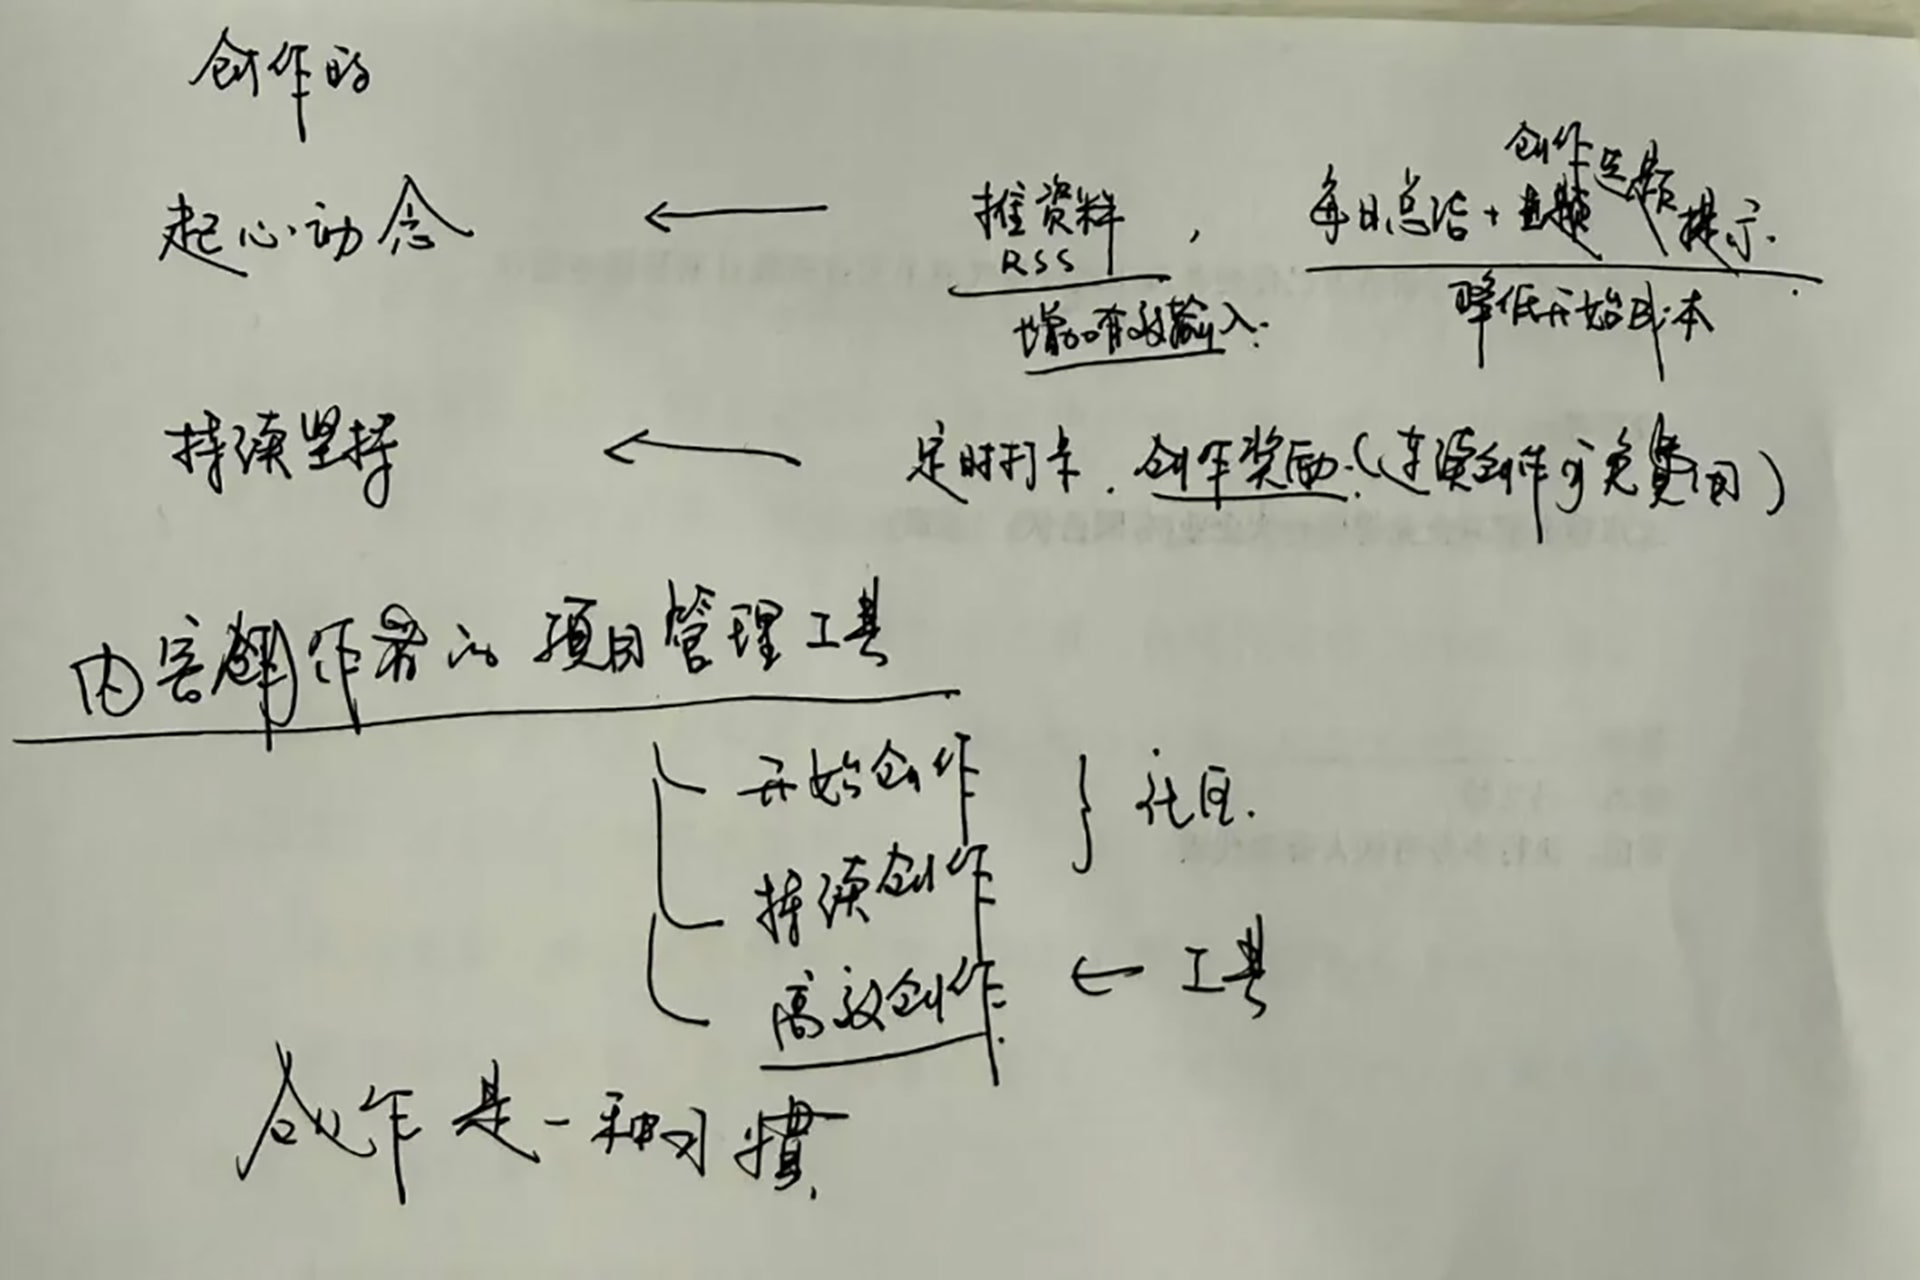 创作的
创作选题
起心动念 ← 推资料, 每日总结+提示.
RSS
增加有效输入. 降低开始成本
持续坚持 ← 定时打卡. 创作奖励.(连续创作可免费用)
内容创作者的项目管理工具
开始创作 } 社区.
持续创作
高效创作. ← 工具
创作是一种习惯.